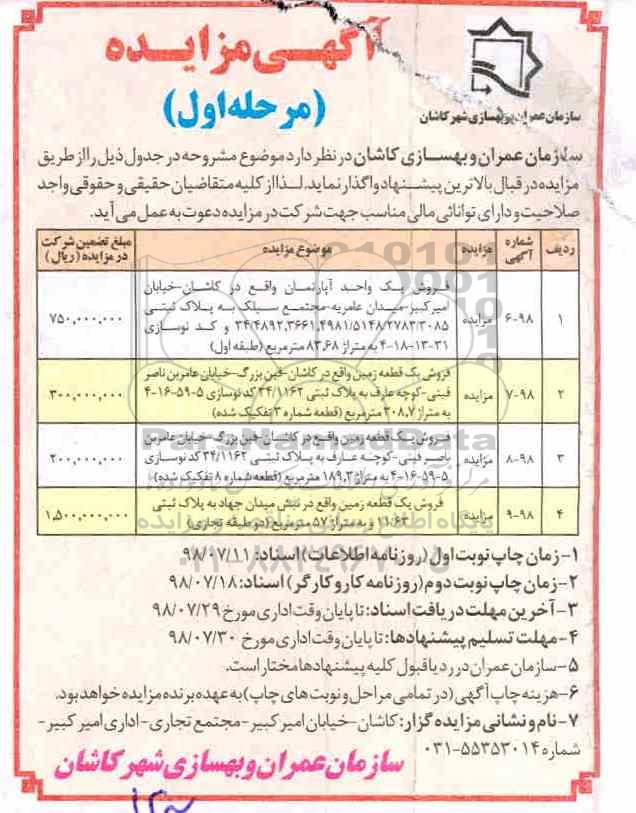 آگهی مزایده
(مرحله اول)
سازمان عمران و بهسازی شهر کاشان
سازمان عمران و بهسازی کاشان در نظر دارد موضوع مشروحه در جدول ذیل را از طریق
مزایده در قبال بالاترین پیشنهاد واگذار نماید. لذا از کلیه متقاضیان حقیقی و حقوقی واجد
صلاحیت و دارای توانائی مالی مناسب جهت شرکت در مزایده دعوت به عمل می آید.
ردیف شماره آگهی مزایده موضوع مزایده مبلغ تضمین شرکت در مزایده (ریال)
۱ ۶-۹۸ مزایده ۷۵۰,۰۰۰,۰۰۰
فروش یک واحد آپارتمان واقع در کاشان-خیابان
امیرکبیر-میدان عامریه-مجتمع سیلک به پلاک ثبتی
۳۴/۴۸۹۲,۳۶۶۱,۴۹۸۱/۵۱۴۸/۲۷۸۳/۳۰۸۵ و کد نوسازی
۴-۱۸-۱۳-۳۱ به متراژ ۸۳,۶۸ مترمربع (طبقه اول)
۲ ۷-۹۸ مزایده ۳۰۰,۰۰۰,۰۰۰
فروش یک قطعه زمین واقع در کاشان-فین بزرگ-خیابان عامربن ناصر
فینی-کوچه عارف به پلاک ثبتی ۳۴/۱۱۶۲ کد نوسازی ۵-۵۹-۱۶-۴
به متراژ ۳۰۸,۷ مترمربع (قطعه شماره ۳ تفکیک شده)
۳ ۸-۹۸ مزایده ۲۰۰,۰۰۰,۰۰۰
فروش یک قطعه زمین واقع در کاشان-فین بزرگ-خیابان عامربن
ناصر فینی-کوچه عارف به پلاک ثبتی ۳۴/۱۱۶۲ کد نوسازی
۵-۵۹-۱۶-۴ به متراژ ۱۸۹,۳ مترمربع (قطعه شماره ۸ تفکیک شده)
۴ ۹-۹۸ مزایده ۱,۵۰۰,۰۰۰,۰۰۰
فروش یک قطعه زمین واقع در نبش میدان جهاد به پلاک ثبتی
۱۱/۶۳ و به متراژ ۵۷ مترمربع (دو طبقه تجاری)
۱-زمان چاپ نوبت اول (روزنامه اطلاعات) اسناد: ۹۸/۰۷/۱۱
۲-زمان چاپ نوبت دوم (روزنامه کار و کارگر) اسناد: ۹۸/۰۷/۱۸
۳-آخرین مهلت دریافت اسناد: تا پایان وقت اداری مورخ ۹۸/۰۷/۲۹
۴-مهلت تسلیم پیشنهادها: تا پایان وقت اداری مورخ ۹۸/۰۷/۳۰
۵-سازمان عمران در رد یا قبول کلیه پیشنهادها مختار است.
۶-هزینه چاپ آگهی (در تمامی مراحل و نوبت های چاپ) به عهده برنده مزایده خواهد بود.
۷-نام و نشانی مزایده گزار: کاشان-خیابان امیر کبیر-مجتمع تجاری-اداری امیر کبیر-
شماره ۵۵۳۵۳۰۱۴-۰۳۱
سازمان عمران و بهسازی شهر کاشان
ParsNamadData
پایگاه اطلاع رسانی مناقصه و مزایده